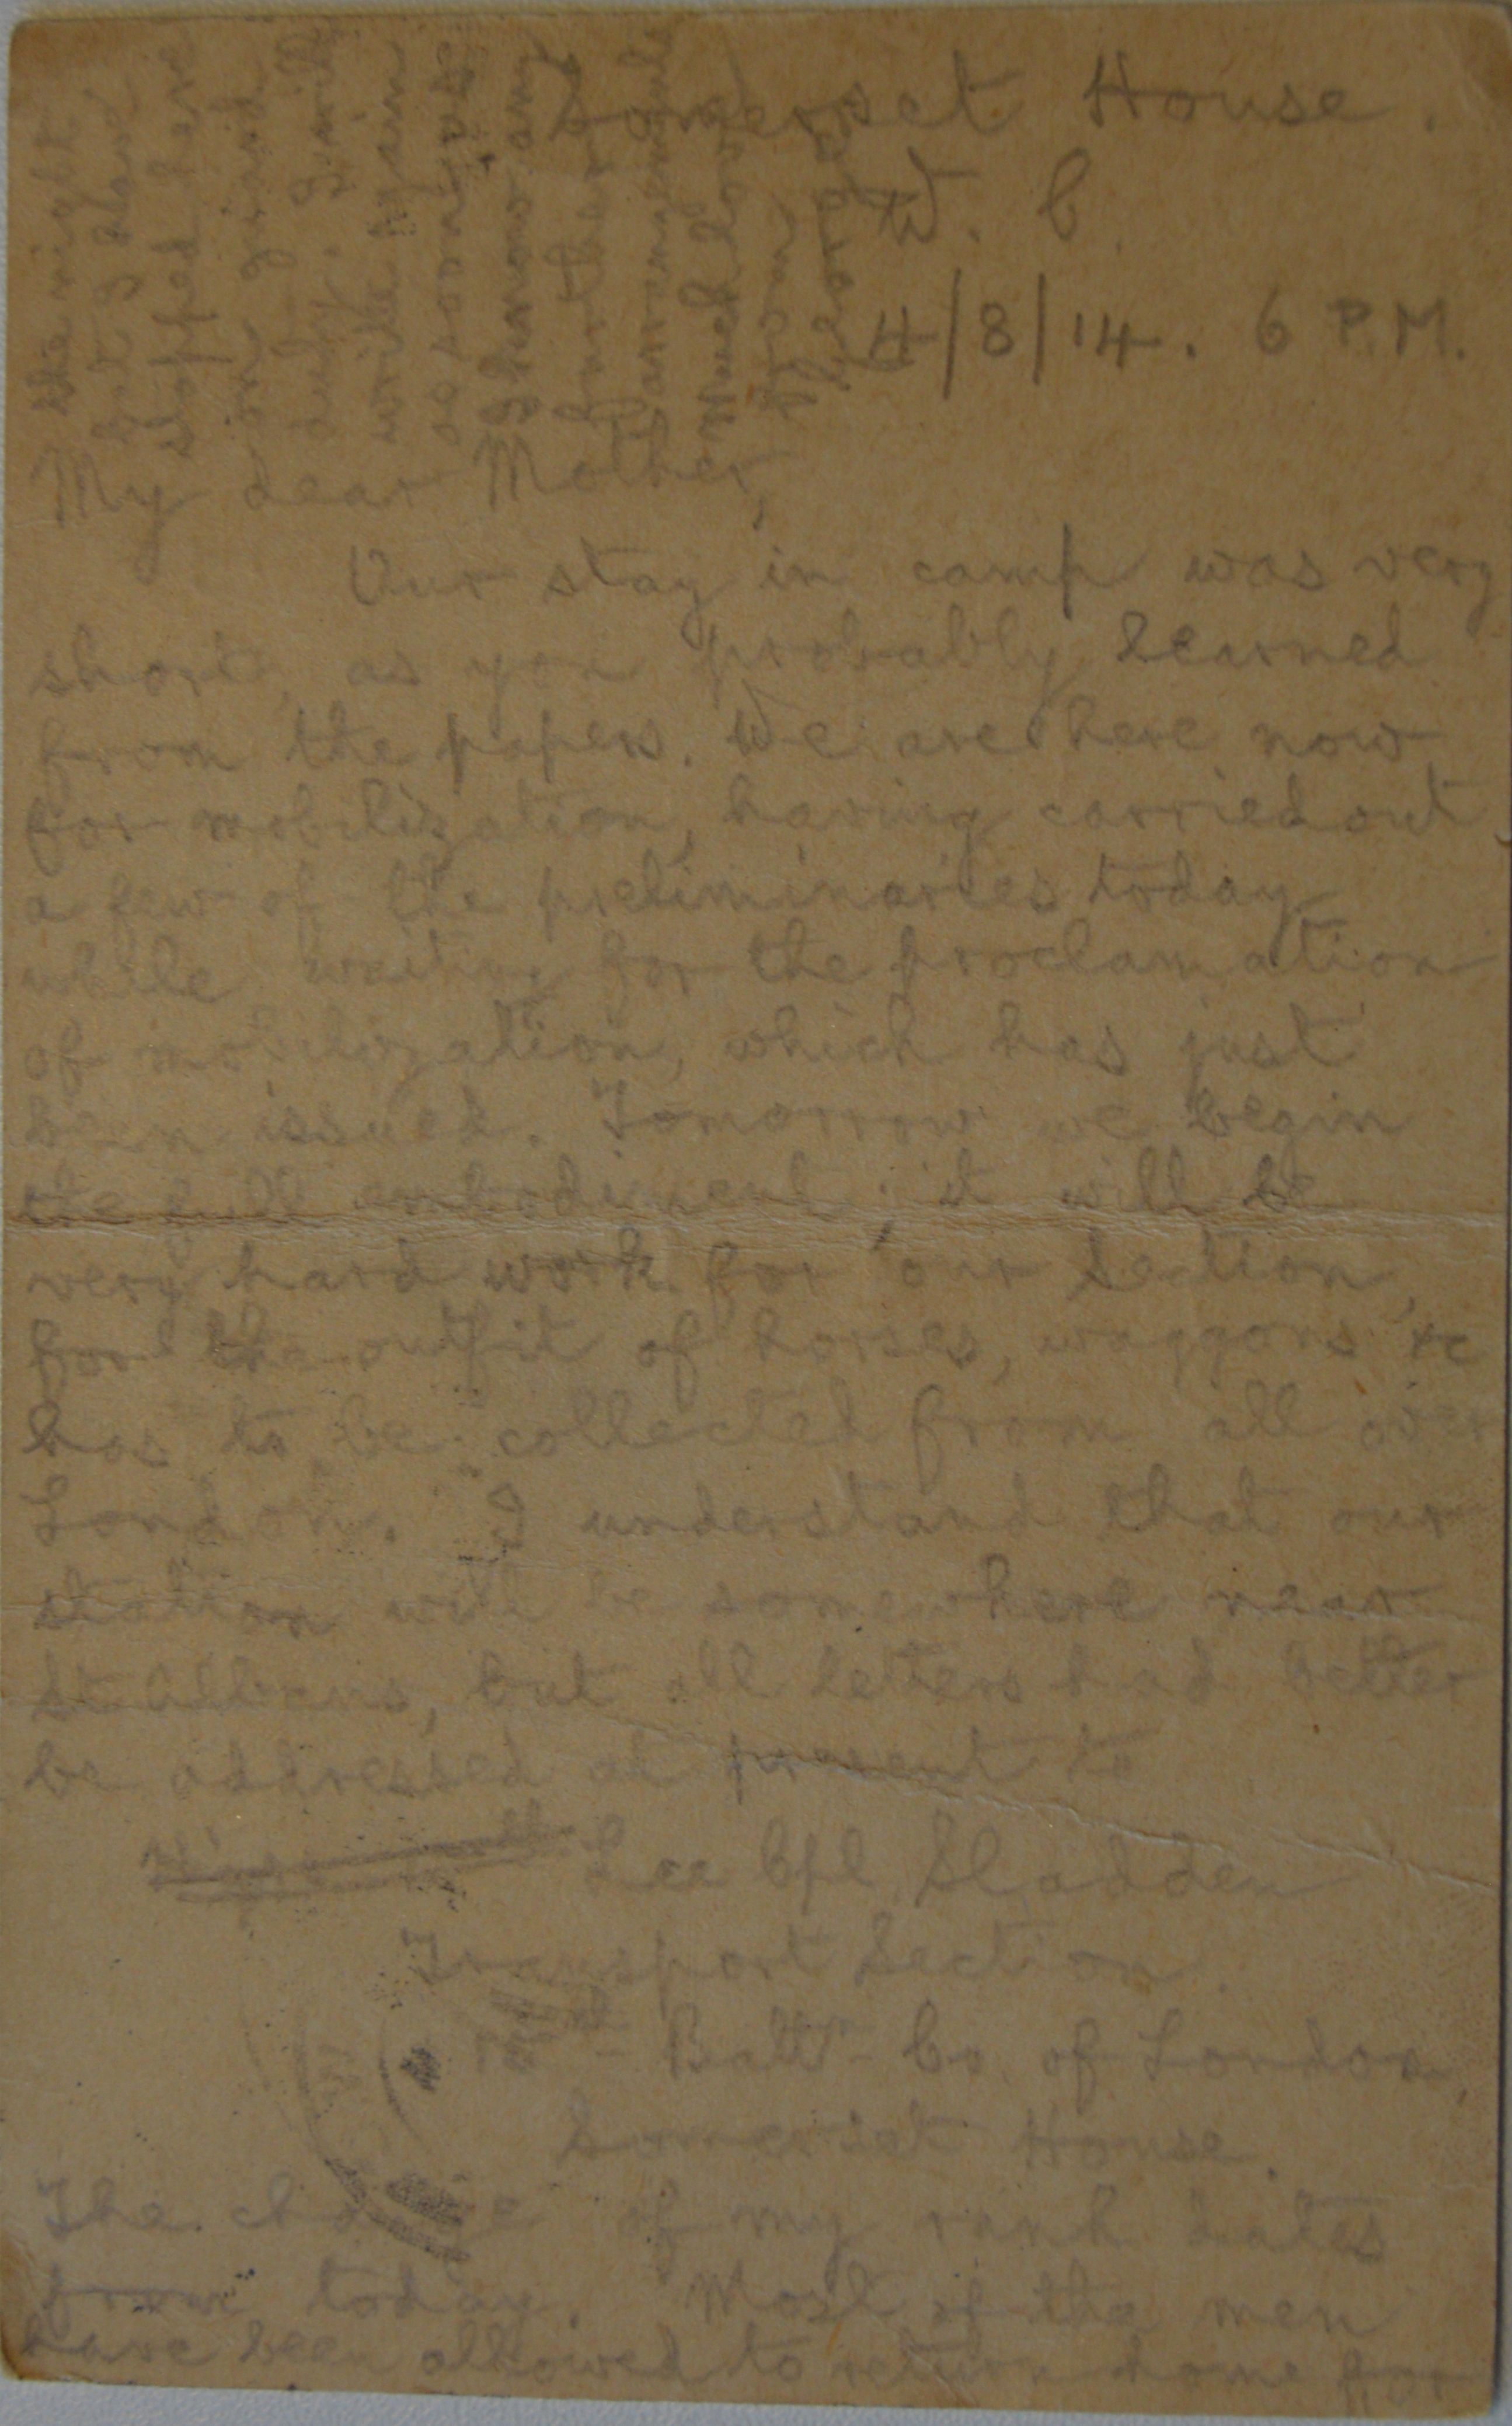 Somerset House.
W. C.
4/8/14. 6 P.M.
My dear Mother,
Our stay in camp was very
short, as you probably learned
from the papers. We are here now
for mobilization, having carried out
a few of the preliminaries today
while waiting for the proclamation
of mobilization, which has just
been issued. Tomorrow we begin
the full embodiment; it will be
very hard work for our section,
for the outfit of horses, waggons &c
has to be collected from all over
London. I understand that our
station will be somewhere near
St Albans, but all letters had better
be addressed at present to
Lce Cpl Sladden
Transport Section.
15th Battn Co. of London,
Somerset House.
The change of my rank dates
from today. Most of the men
have been allowed to return home for
the night
but I have
stopped here
on guard
duty. I will
write again
as soon as
I know any
further
arrangements
Much love
from